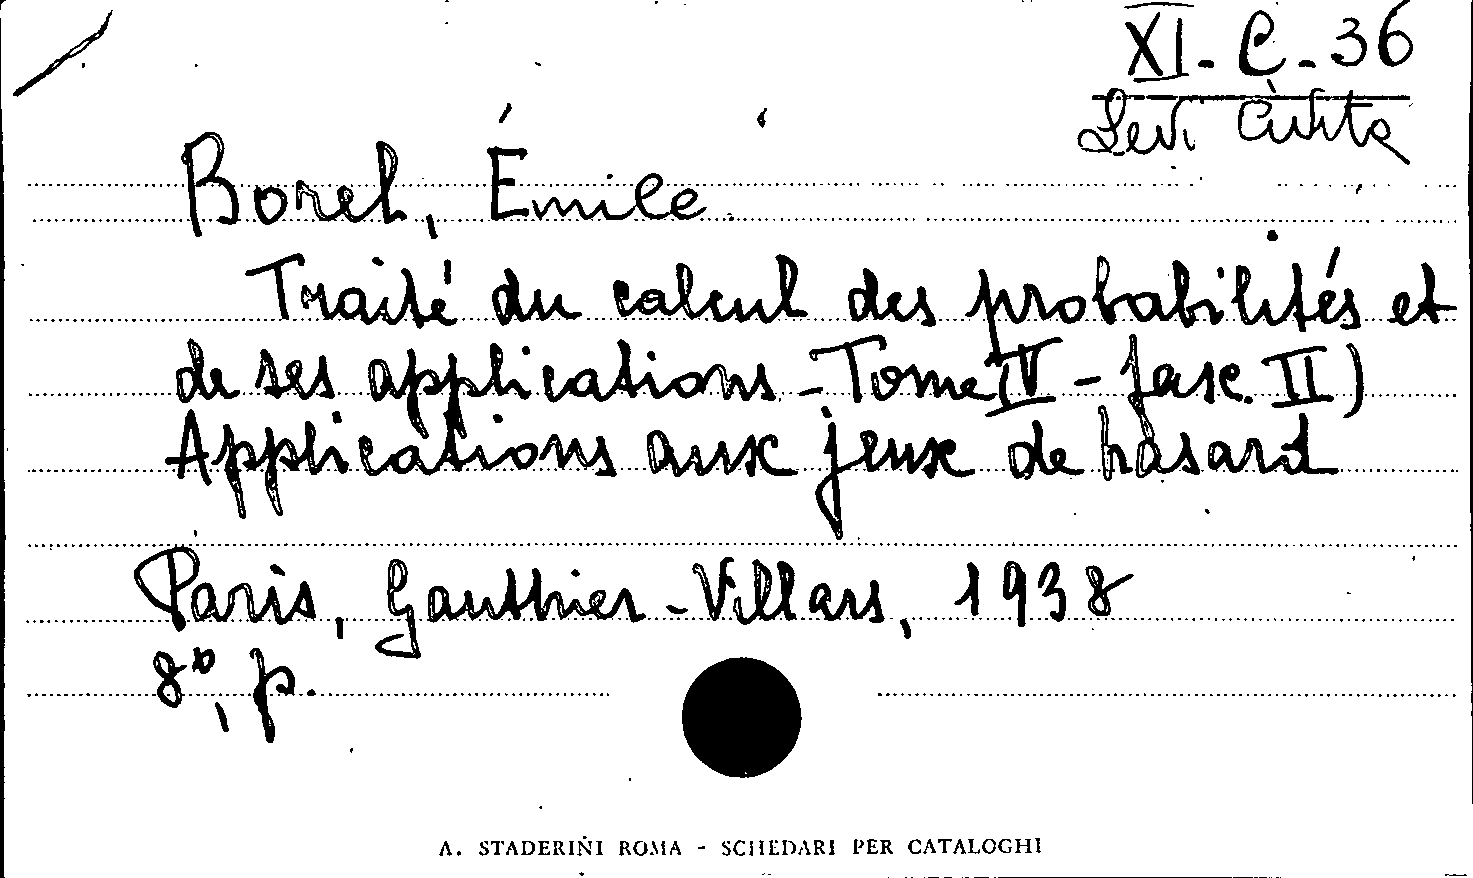 XI-C-36
Levi Civita
Borel, Émile
Traité du calcul des probabilités et
de ses applications - Tome IV - fasc. II)
Applications aux jeux de hasard
Paris, Gauthier-Villars, 1938
8°, p.
A. STADERINI ROMA - SCHEDARI PER CATALOGHI